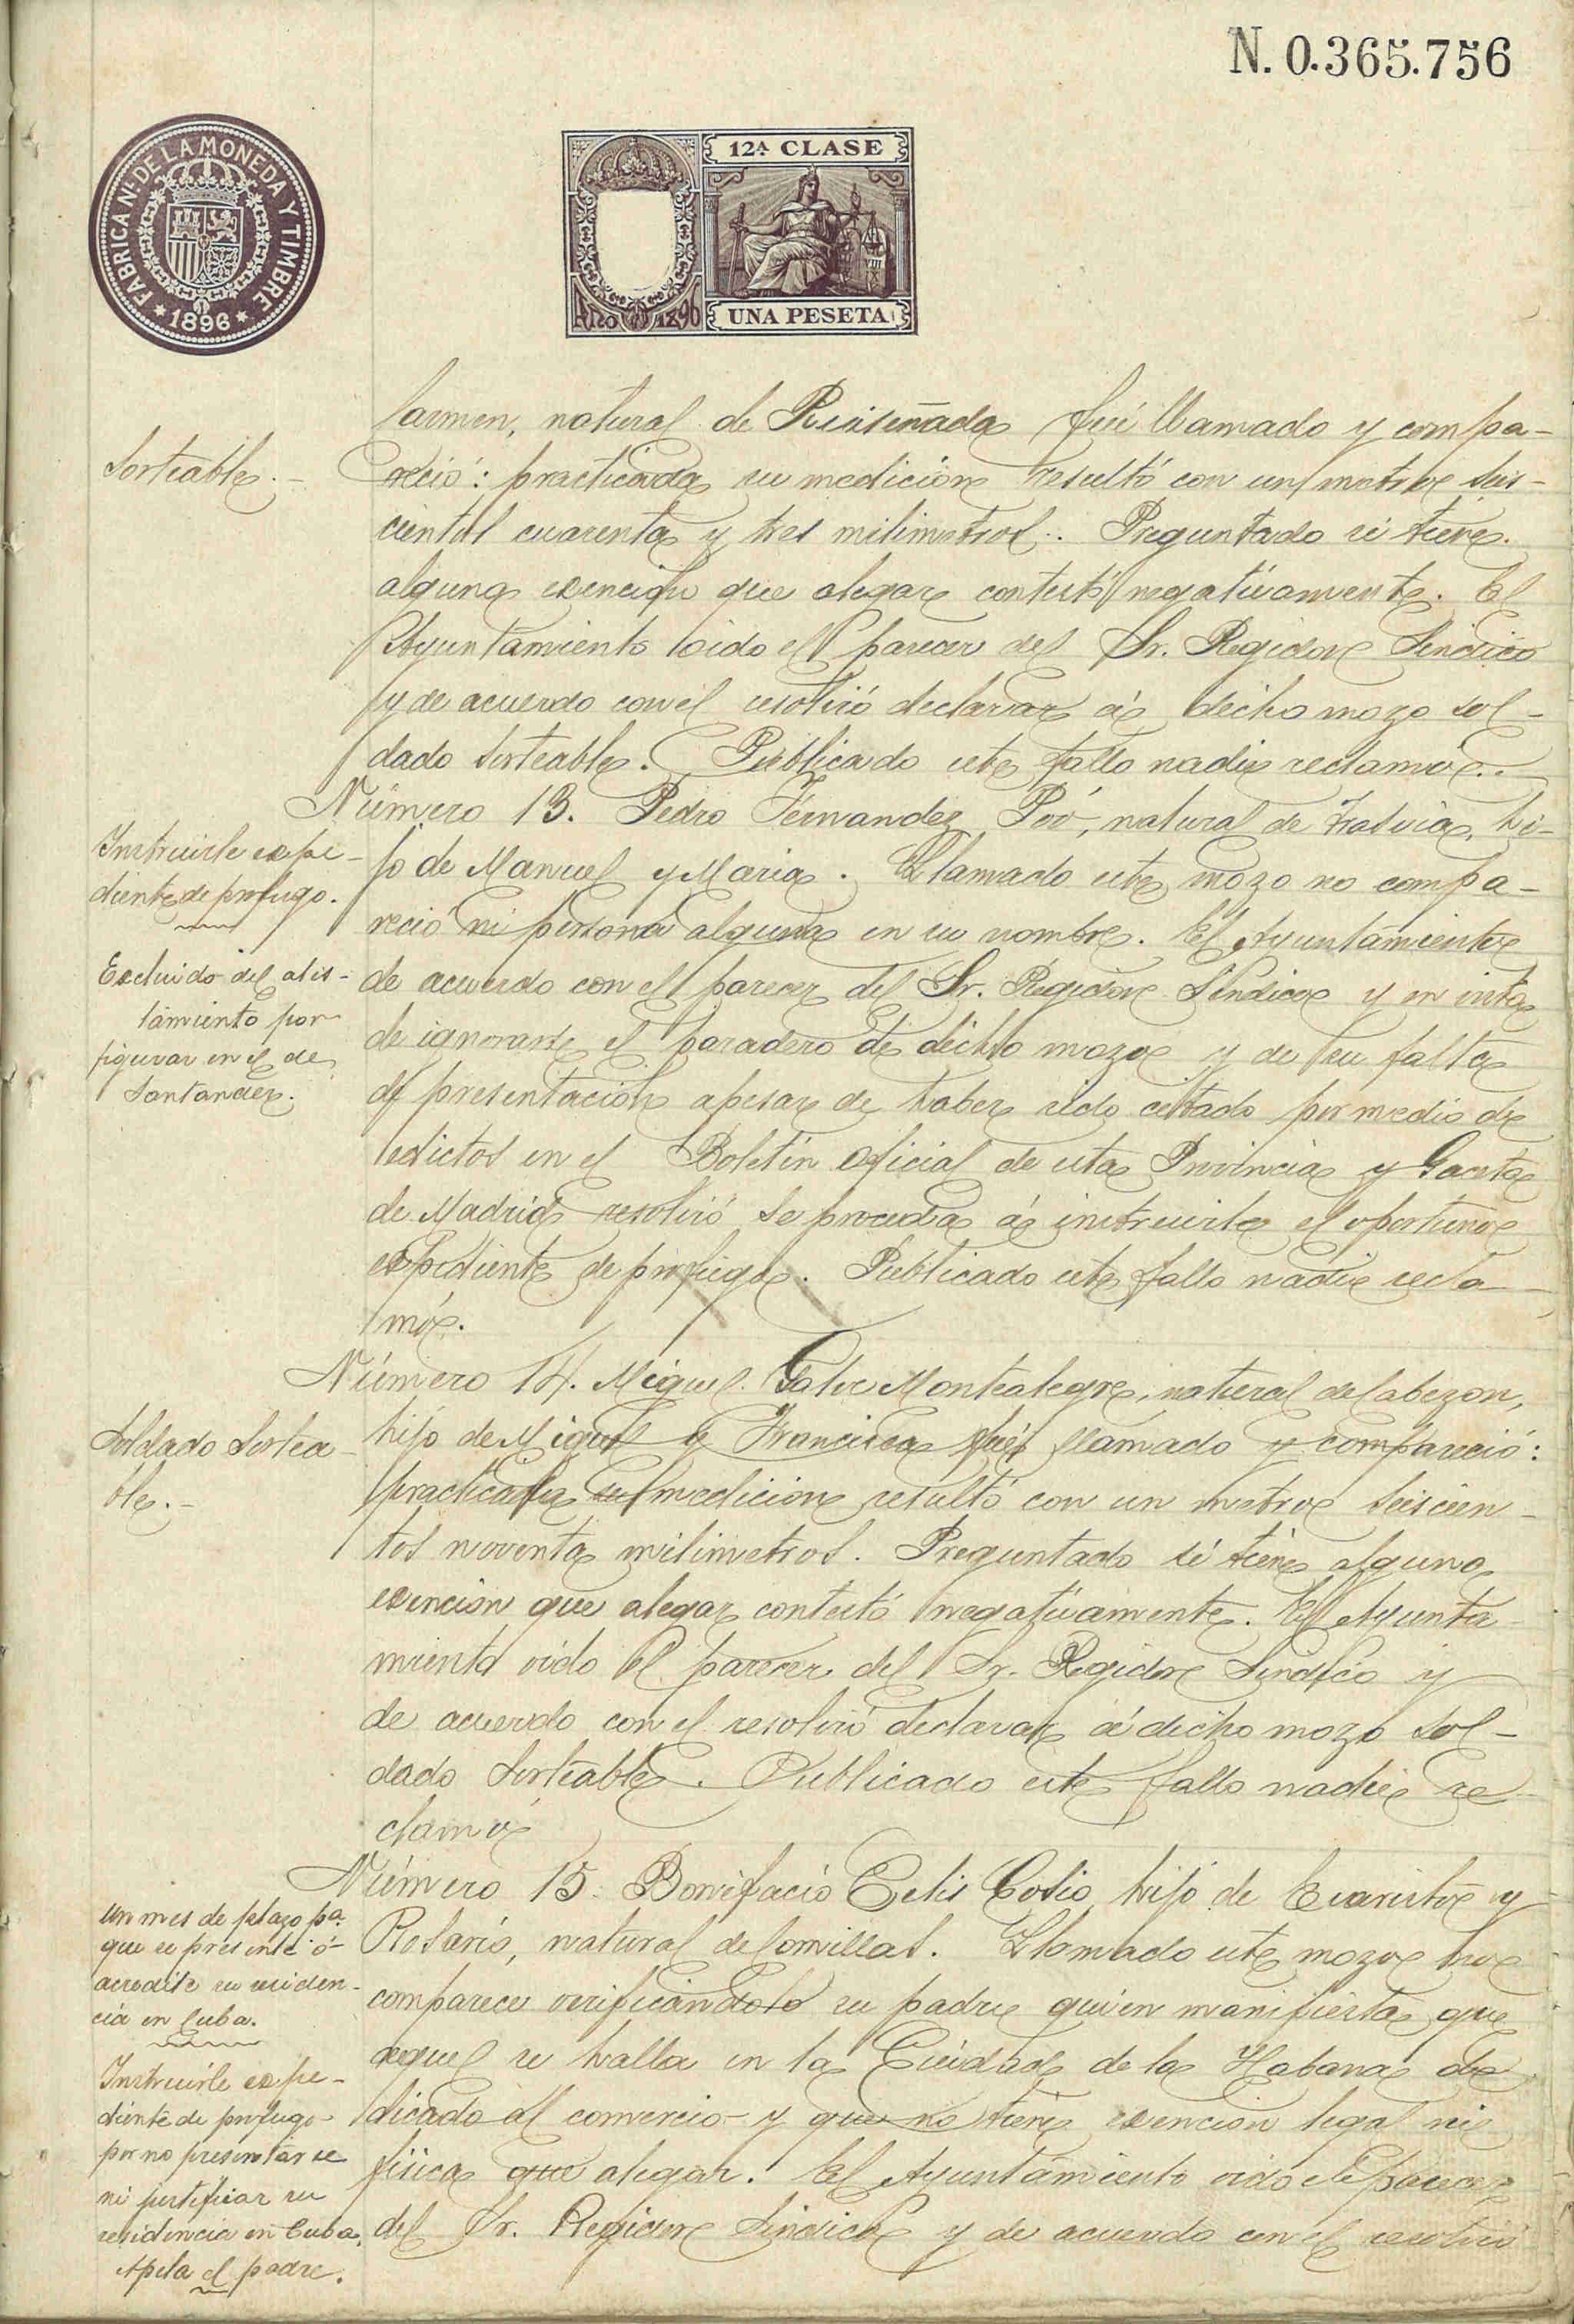 N. 0.365.756
FABRICA Nl. DE LA MONEDA Y TIMBRE
* 1896 *
12A CLASE
Año D 1896
UNA PESETA
Carmen, natural de Ruiseñada fué llamado y compa-
Sorteable.-
reció: practicada su medición resultó con un metro seis-
cientos cuarenta y tres milimetros. Preguntado si tiene
alguna exención que alegar contestó negativamente. El
Ayuntamiento oido el parecer del Sr. Regidor Sindico
y de acuerdo con él resolvió declarar á dicho mozo sol-
dado sorteable. Publicado este fallo nadie reclamó.
Número 13. Pedro Fernandez Póo, natural de, hi-
jo de Manuel y Maria. Llamado este mozo no compa-
reció ni persona alguna en su nombre. El Ayuntamiento
de acuerdo con el parecer del Sr. Regidor Sindico y en vista
de ignorarse el paradero de dicho mozo y de su falta
de presentación apesar de haber sido citado por medio de
edictos en el Boletín Oficial de esta Provincia y Gaceta
de Madrid resolvió se proceda á instruirle el oportuno
expediente de prófugo. Publicado este fallo nadie recla-
mó.
Instruirle expe-
diente de prófugo.
Excluido del alis-
tamiento por
figurar en el de
Santander.
Número 14. Miguel Galve Montealegre, natural de Cabezon,
hijo de Miguel y Francisca fué llamado y compareció:
practicada su medicion resultó con un metro seiscien-
tos noventa milimetros. Preguntado si tiene alguna
exencion que alegar contestó negativamente. El Ayunta-
miento oido el parecer del Sr. Regidor Sindico y
de acuerdo con el resolvió declarar á dicho mozo sol-
dado sorteable. Publicado este fallo nadie re-
clamó
Soldado Sortea-
ble.-
Número 15. Bonifacio Celis Cosio hijo de Evaristo y
Rosario, natural de Comillas. Llamado este mozo no
comparece verificandolo su padre quien manifiesta que
aquel se halla en la Ciudad de la Habana de-
dicado al comercio y que no tiene exencion legal ni
fisica que alegar. El Ayuntamiento oido el parecer
del Sr. Regidor Sindico y de acuerdo con el resolvió
Un mes de plazo pa.
que se presente ó
acredite su residen-
cia en Cuba.
Instruirle expe-
diente de prófugo
por no presentarse
ni justificar su
residencia en Cuba.
Apela el padre.